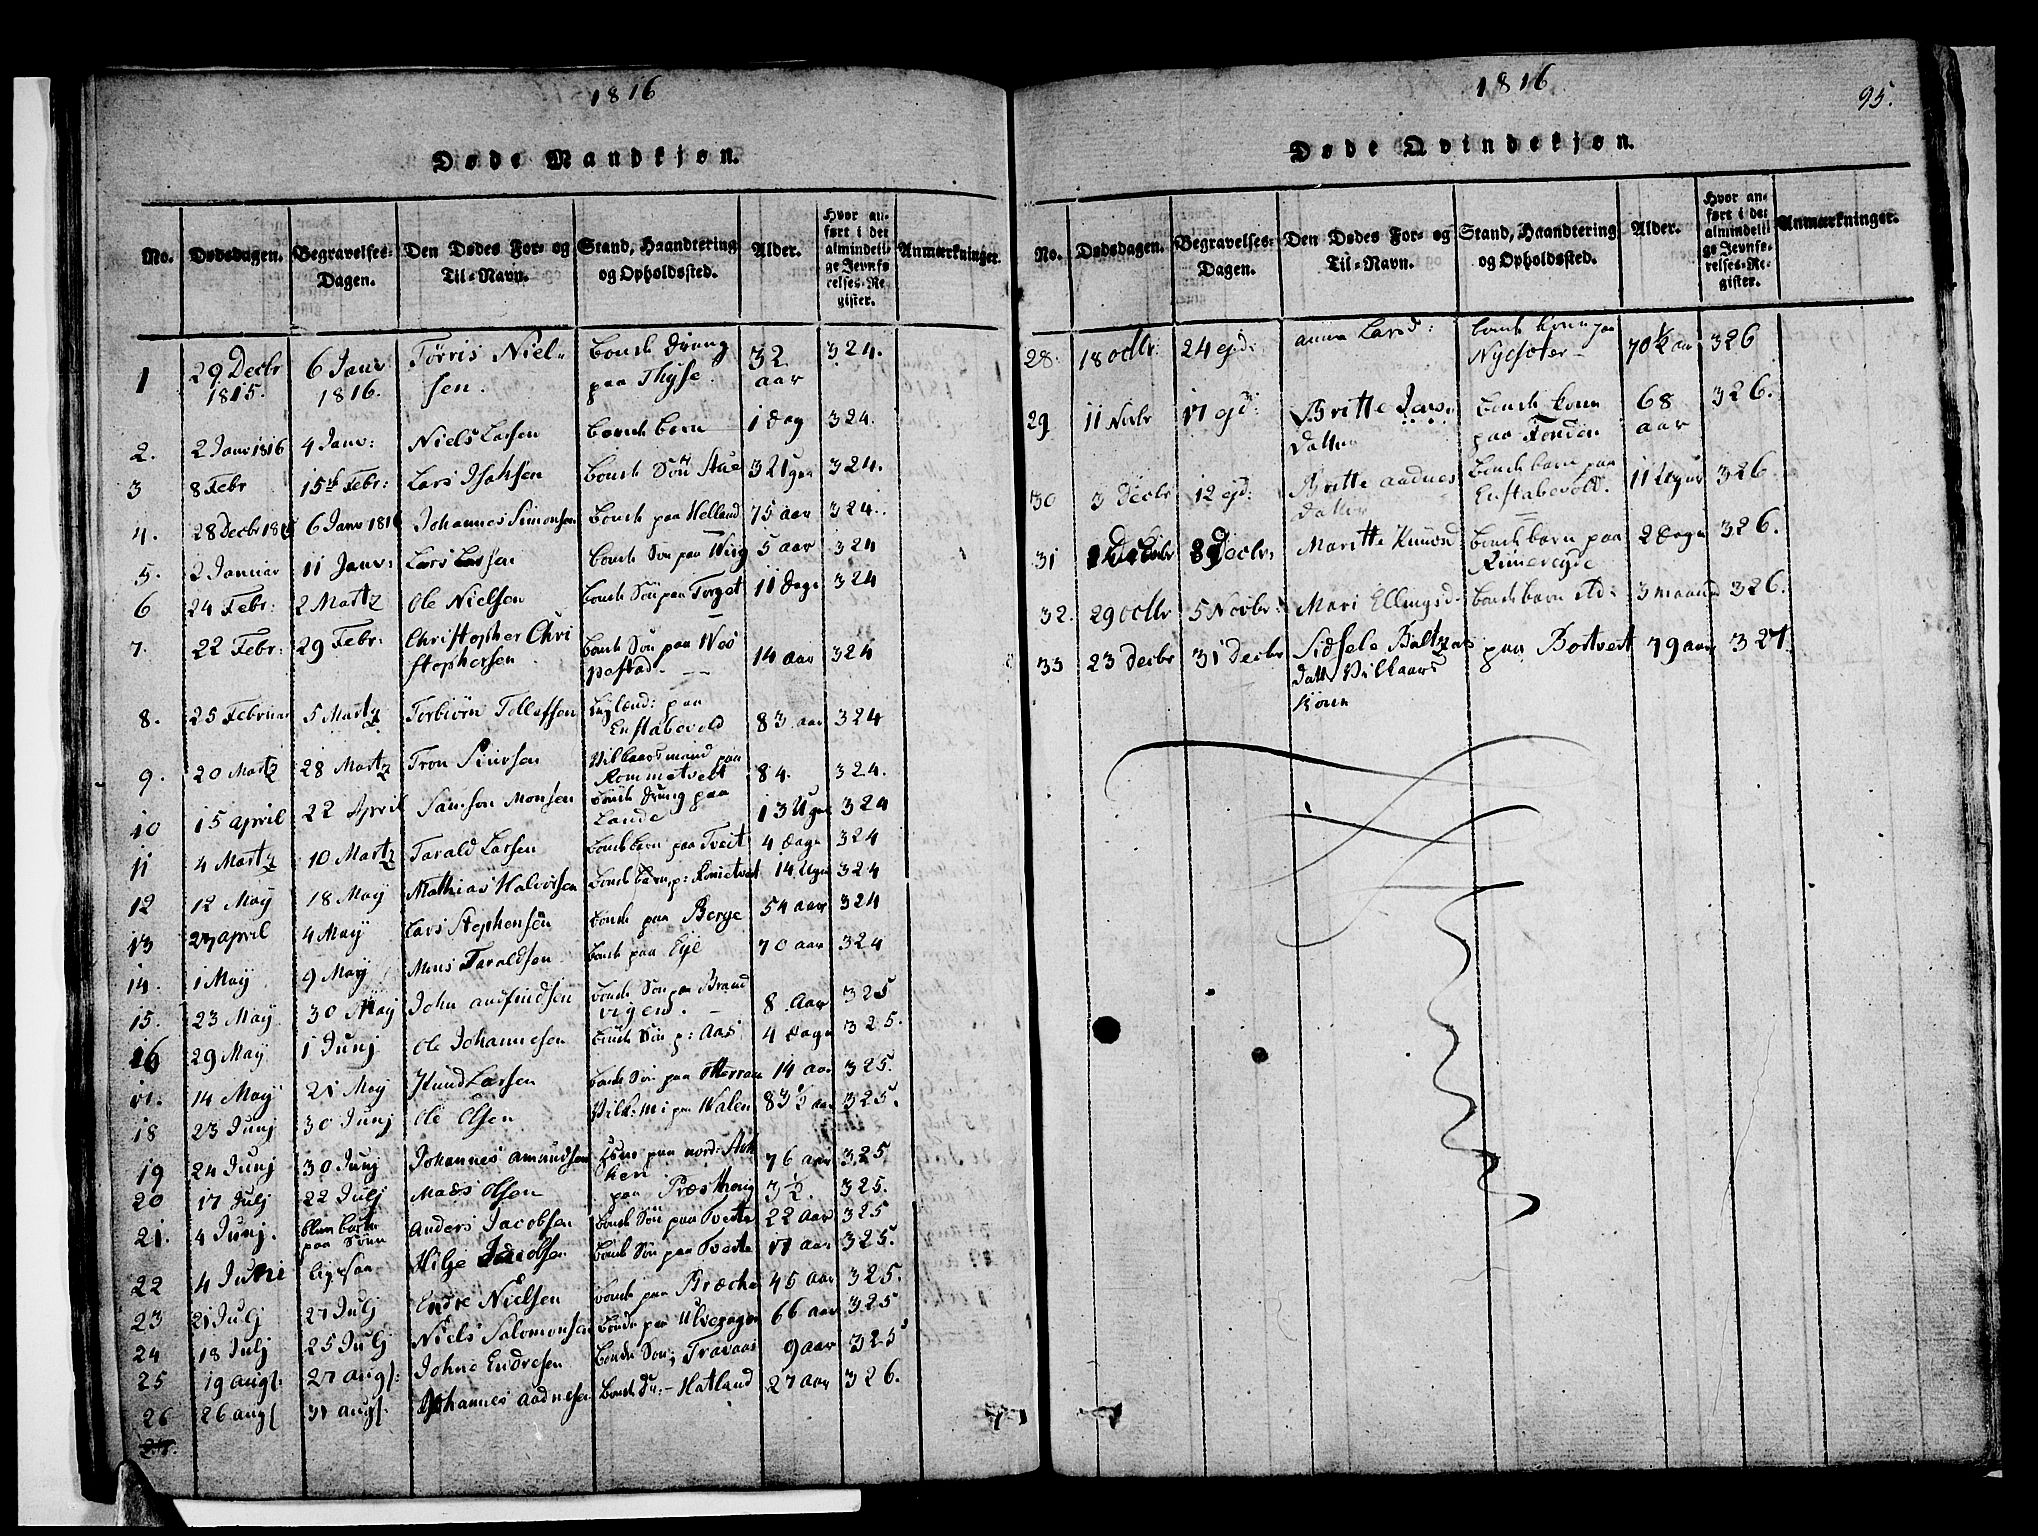 1816
Døde Mandkjøn.
No. Dødsdagen. Begravelses-Dagen. Den Dødes For- og Til-Navn. Stand, Haandtering og Opholdssted. Alder. Hvor anført i det almindelige Jevnførelses-Register. Anmærkninger.
1 29 Decbr 1815. 6 Janv 1816. Tørris Nielsen. bonde dreng paa Thyse. 32 aar 324.
2. 2 Janv 1816 4 Janv: Niels Larsen bonde barn 1 dag 324.
3 8 Febr 15de Febr: Lars Isaksen bonde Søn 3 Uger 324.
4. 28 Decbr 1815 6 Janv 1816 Johannes Simonsen bonde paa Helland 75 aar 324.
5. 2 Januar 11 Janv: Lars Larsen bonde Søn paa 5 aar 324
6 24 Febr: 2 Martz Ole Nielsen bonde Søn paa Torget 11 dage 324
7. 22 Febr: 29 Febr: Christopher Christophersen bonde Søn paa 14 aar 324
8. 25 Februar 5 Martz Torbiörn Tollefsen paa Enstabovold 83 aar 324
9. 20 Martz 28 Martz Tron Siursen Vilkaarsmand paa Rommetvedt 84. 324.
10 15 april 22 April Samson Monsen bonde dreng paa Lande 13 Uger 324
11 4 Martz 10 Martz Tarald Larsen bonde barn paa Tveit 4 dage 324
12 12 Maÿ 18 Maÿ Mathias Halvorsen bonde barn p: 14 Uger 324
13 27 april 4 Maÿ Lars Stephensen bonde paa Berge 54 aar 324
14. 1 Maÿ 9 Maÿ Mons Taraldsen bonde paa Eÿe 70 aar 324
15. 23 Maÿ 30 Maÿ John andfindsen bonde Søn paa Brandvigen. 8 Aar 325
16 29 Maÿ 1 Junj Ole Johannesen bonde Søn p: Aas 4 dage 325.
17. 14 Maÿ 21 Maÿ Knud Larsen bonde Søn paa 14 aar 325.
18 23 Junj 30 Junj Ole Olsen Vilk: M: paa Walen 83½ aar 325.
19 24 Junj 30 Junj Johannes amundsen paa nord: 76 aar 325
20 17 Julj 22 Julj Mads Olsen paa 3½. 325.
21. 4 Junj. blev borte paa Søen Anders Jacobsen bonde Søn paa Tveite 22 aar 325
22 4 Juni ligesaa Hilje Jacobsen bonde Søn paa Tveite 17 aar 325.
23 21 Julj 27 Julj Endre Nielsen bonde paa Bræcke 45 aar 325.
24 18 Julj 25 Julj Niels Salomonsen bonde paa 66 aar 325
25 19 aug: 27 aug: Johne Endresen bonde Søn; Travaas 9 aar 325
26 26 aug 31 aug. Johannes aadnesen bonde Hatland 27 aar 326.
27.
1816
95.
Døde Qvindekjøn.
No. Dødsdagen. Begravelses-Dagen. Den Dødes For- og Til-Navn. Stand, Haandtering og Opholdssted. Alder. Hvor anført i det almindelige Jevnførelses-Register. Anmærkninger.
28. 18 octbr 24 ejd: anna Larsd: bonde kone paa Nycsæter 70½ aar 326
29 11 Novbr 17 ejd: Britte datter bonde kone paa Tonden 68 aar 326.
30 3 Decbr 12 ejd: Britte aadnes datter bonde barn paa Enstabovold. 11 Uger 326.
31 Decbr Maritte Knuds bonde barn paa Rimereyde 2 dage 326.
32. 29 octbr 5 Novbr: Mari Ellingsd. bonde barn 3 maaned 326.
33 23 decbr 31 decbr Sidsele Baltzers datter Vilkaars kone paa Bostvert 79 aar 327.